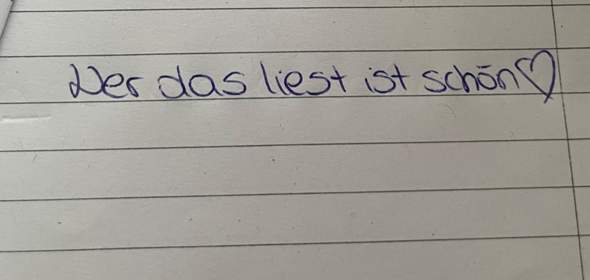 Wer das liest ist schön♡